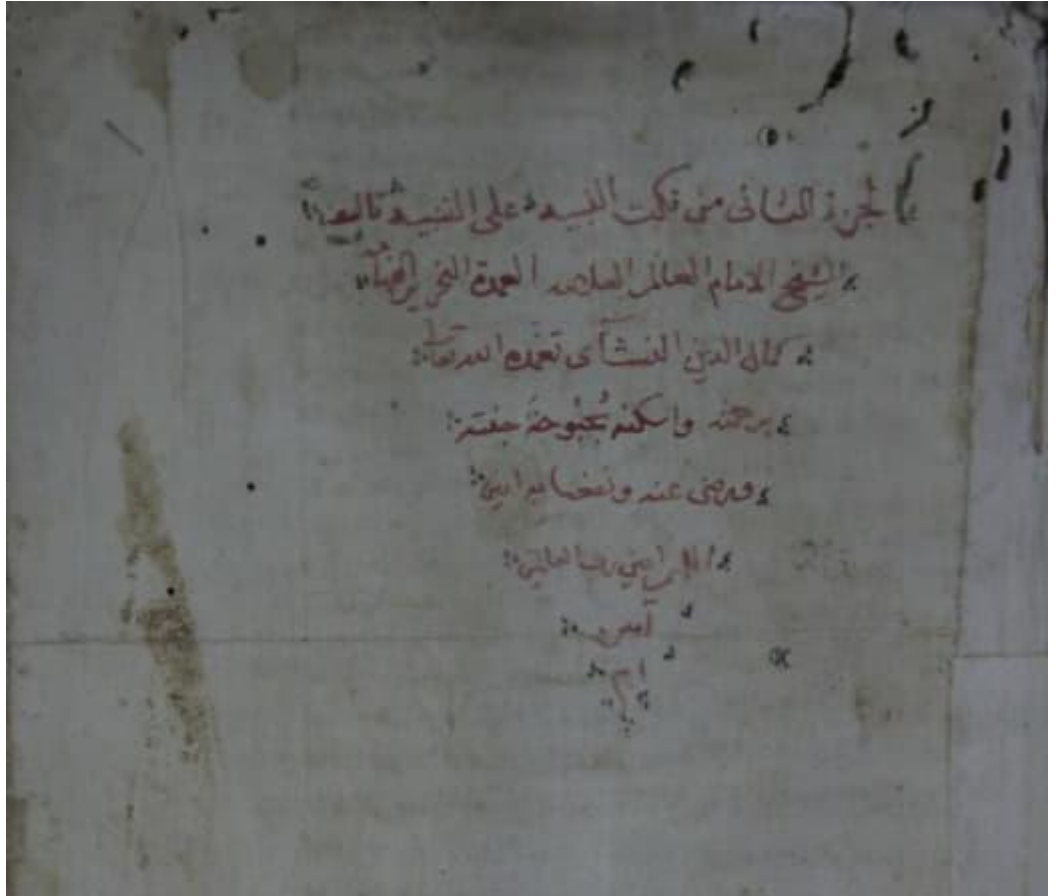 الجزء الثاني من نكت النبيه على التنبيه تاليف
الشيخ الامام العالم العلامه العمدة النحرير الفهامة
كمال الدين النشآى تغمده الله تعالى
برحمته واسكنه بُحْبُوحَةَ جنته
ورضى عنه ونفعنا به امين
امين رب العالمين
آمين
ام